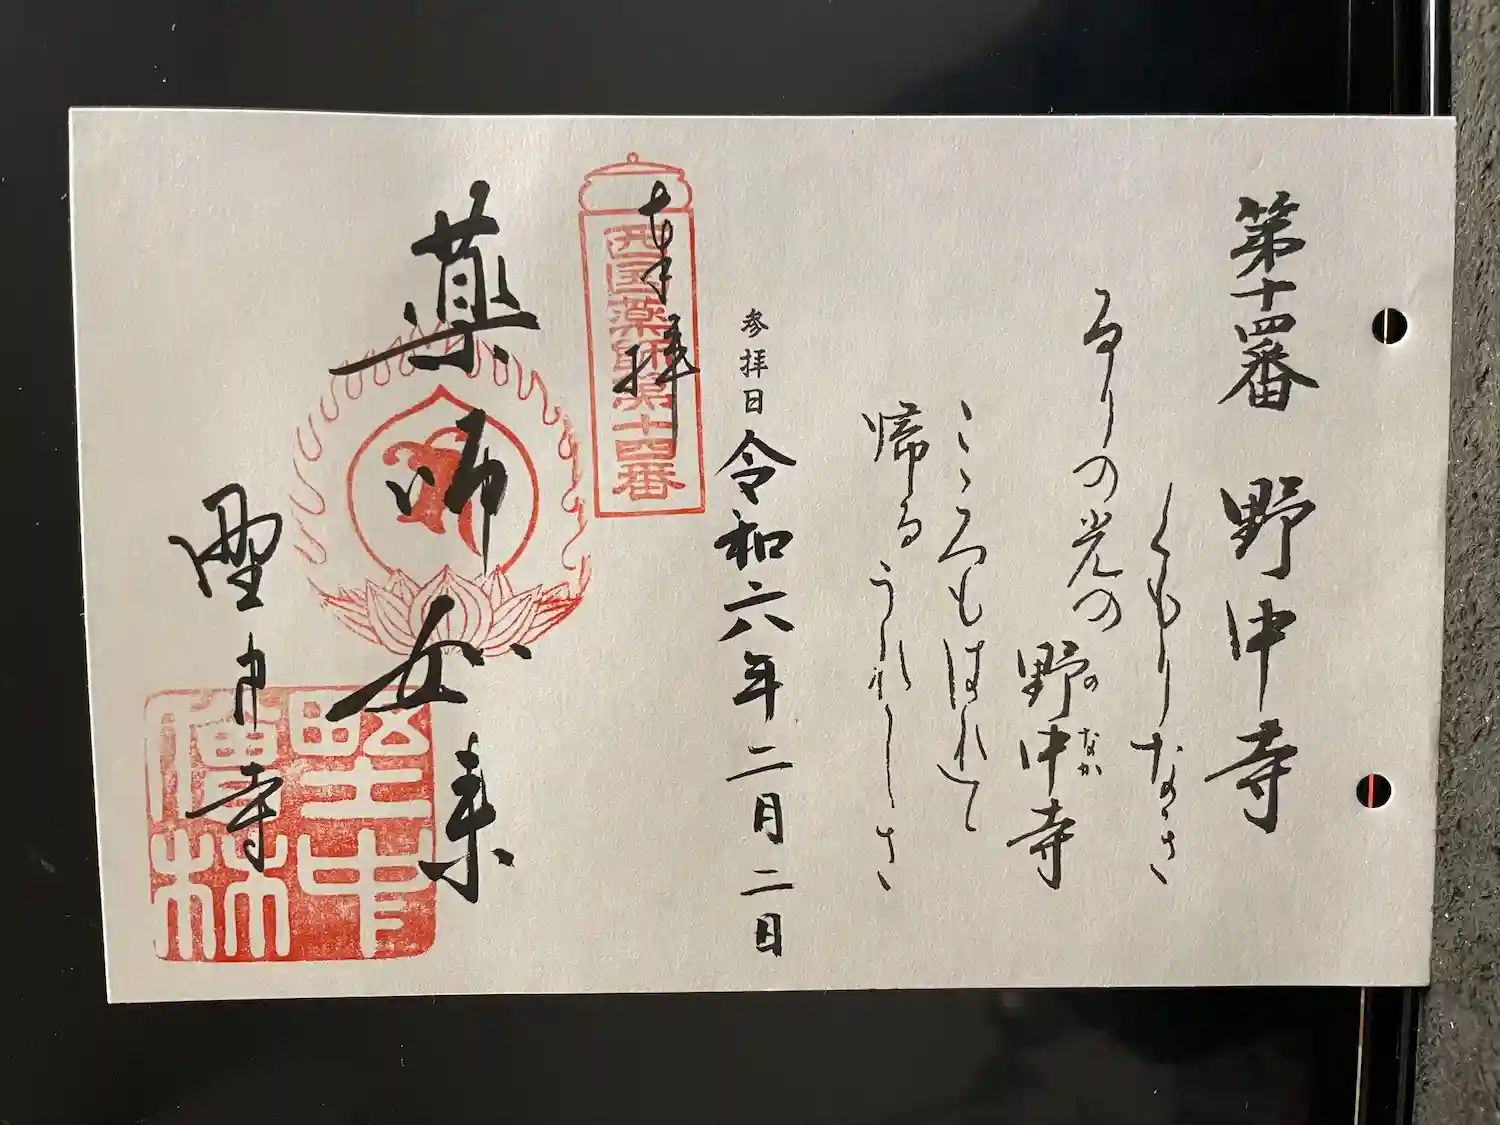 第十四番 野中寺
くもりなき
るりの光の
野中寺
のなか
こゝろもはれて
帰るうれしさ
参拝日 令和六年二月二日
奉拝
西国薬師第十四番
薬師如来
野中寺
野中
僧林